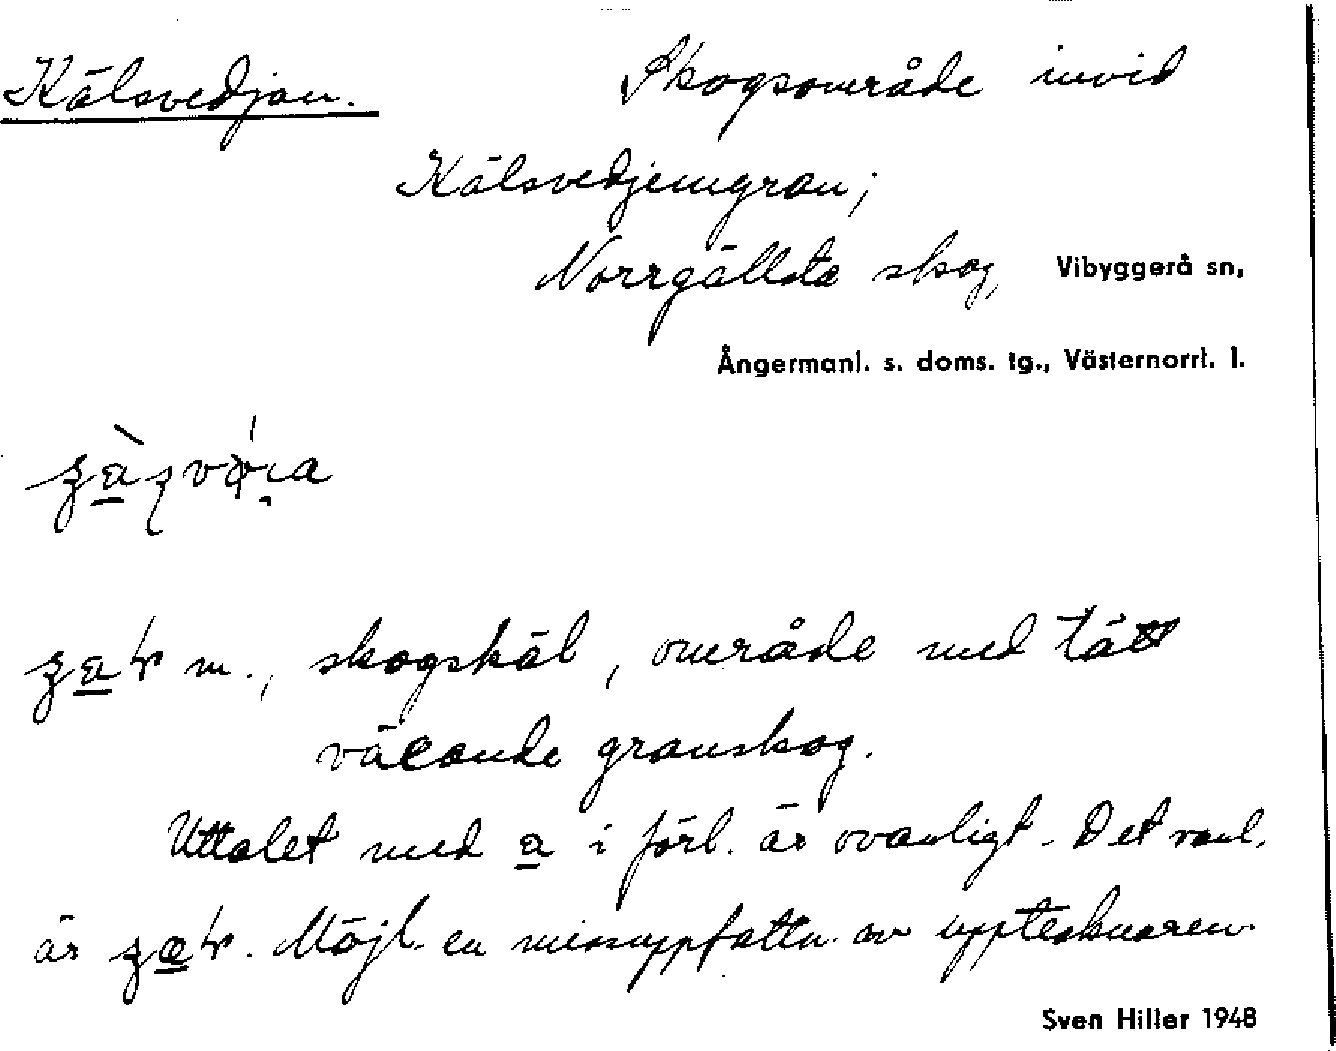 Kälsvedjan. Skogsområde invid
Kälsvedjemyran;
Norrgällsta skog, Vibyggerå sn,
Ångermanl. s. doms. tg., Västernorrl. l.
m., skogskäl, område med tätt
växande granskog.
Uttalet med a i förl. är ovanligt. Det vanl.
är . Möjl. en missuppfattn. av upptecknaren.
Sven Hiller 1948